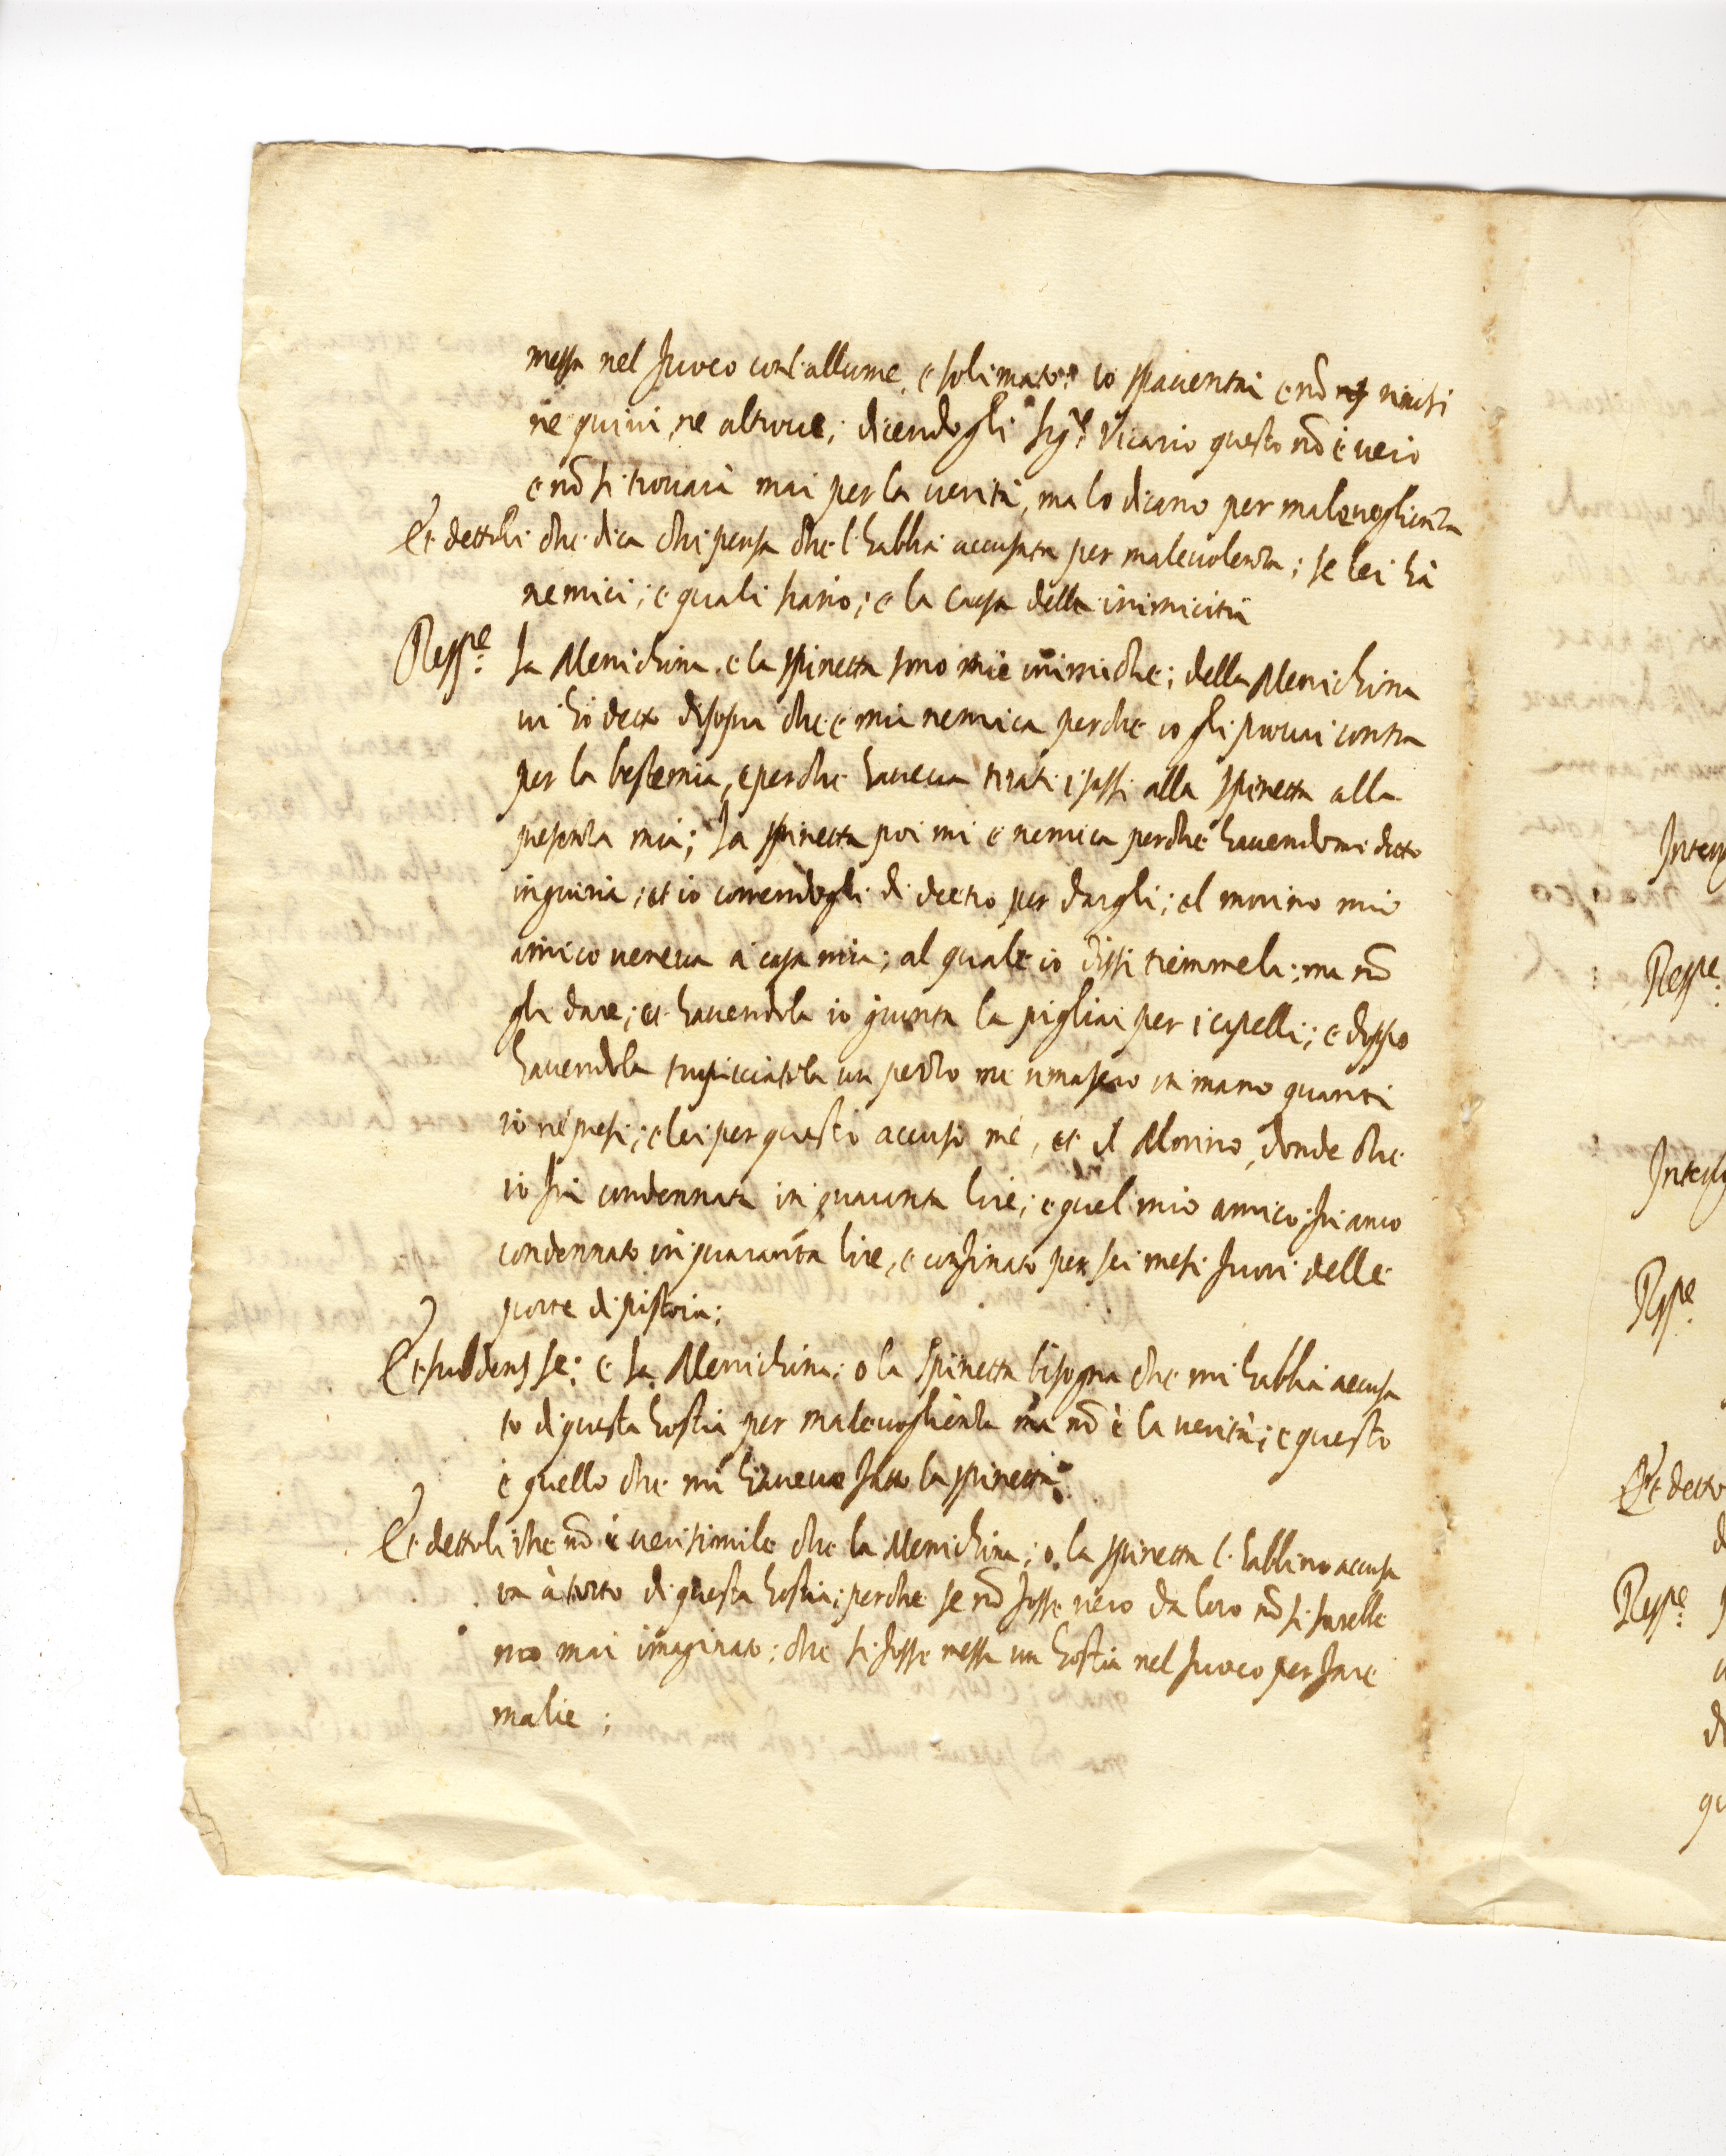 messa nel fuoco con l'allume, e solimato: io spaventai e nō risposi
ne quivi, ne altrove; dicendogli Sigr. Vicario questo nō è vero
e nō si trovarà mai per la verità, ma lo dicano per malevoglienza
Et dettoli che dica chi pensa che l'habbia accusata per malevolenza; se lei hà
nemici; e quali siano; e la causa della inimicitia
Respe. la Menichina, e la spinetta sono mie inimiche; della Menichina
vi hò detto disopra che è mia nemica perche io gli provai contra
per la bestemia, e perche haveva tirati i sassi alla spinetta alla
presenza mia; la spinetta poi mi è nemica perche havendomi detto
ingiuria; et io correndogli di dietro per dargli; el morino mio
amico veneva à casa mia; al quale io dissi tiemmela; ma nō
gli dare; et havendola io giunta la pigliai per i capelli; e doppo
havendola un pezzo me rimasero in mano quanti
io ne presi; e lei per questo accusò me, et il Morino, donde che
io fui condennata in quaranta lire; e quel mio amico fu anco
condennato in quaranta lire, e confinato per sei mesi fuori delle
porte di pistoia;
Et subdens se: e la Menichina; o la spinetta bisogna che mi habbia accusa
to di questa hostia per malevoglienza ma nō è la verità; e questo
è quello che mi haveva fatto la spinetta.
Et dettoli che nō è verisimile che la Menichina; o la spinetta l'habbino accusa
ta à torto di questa hostia; perche se nō fosse vero da loro nō si sarebbe
ro mai imaginato; che si fosse messa un hostia nel fuoco per fare
malie;
Interg
Respe.
Interg
Respe.
Et detto
Respe.